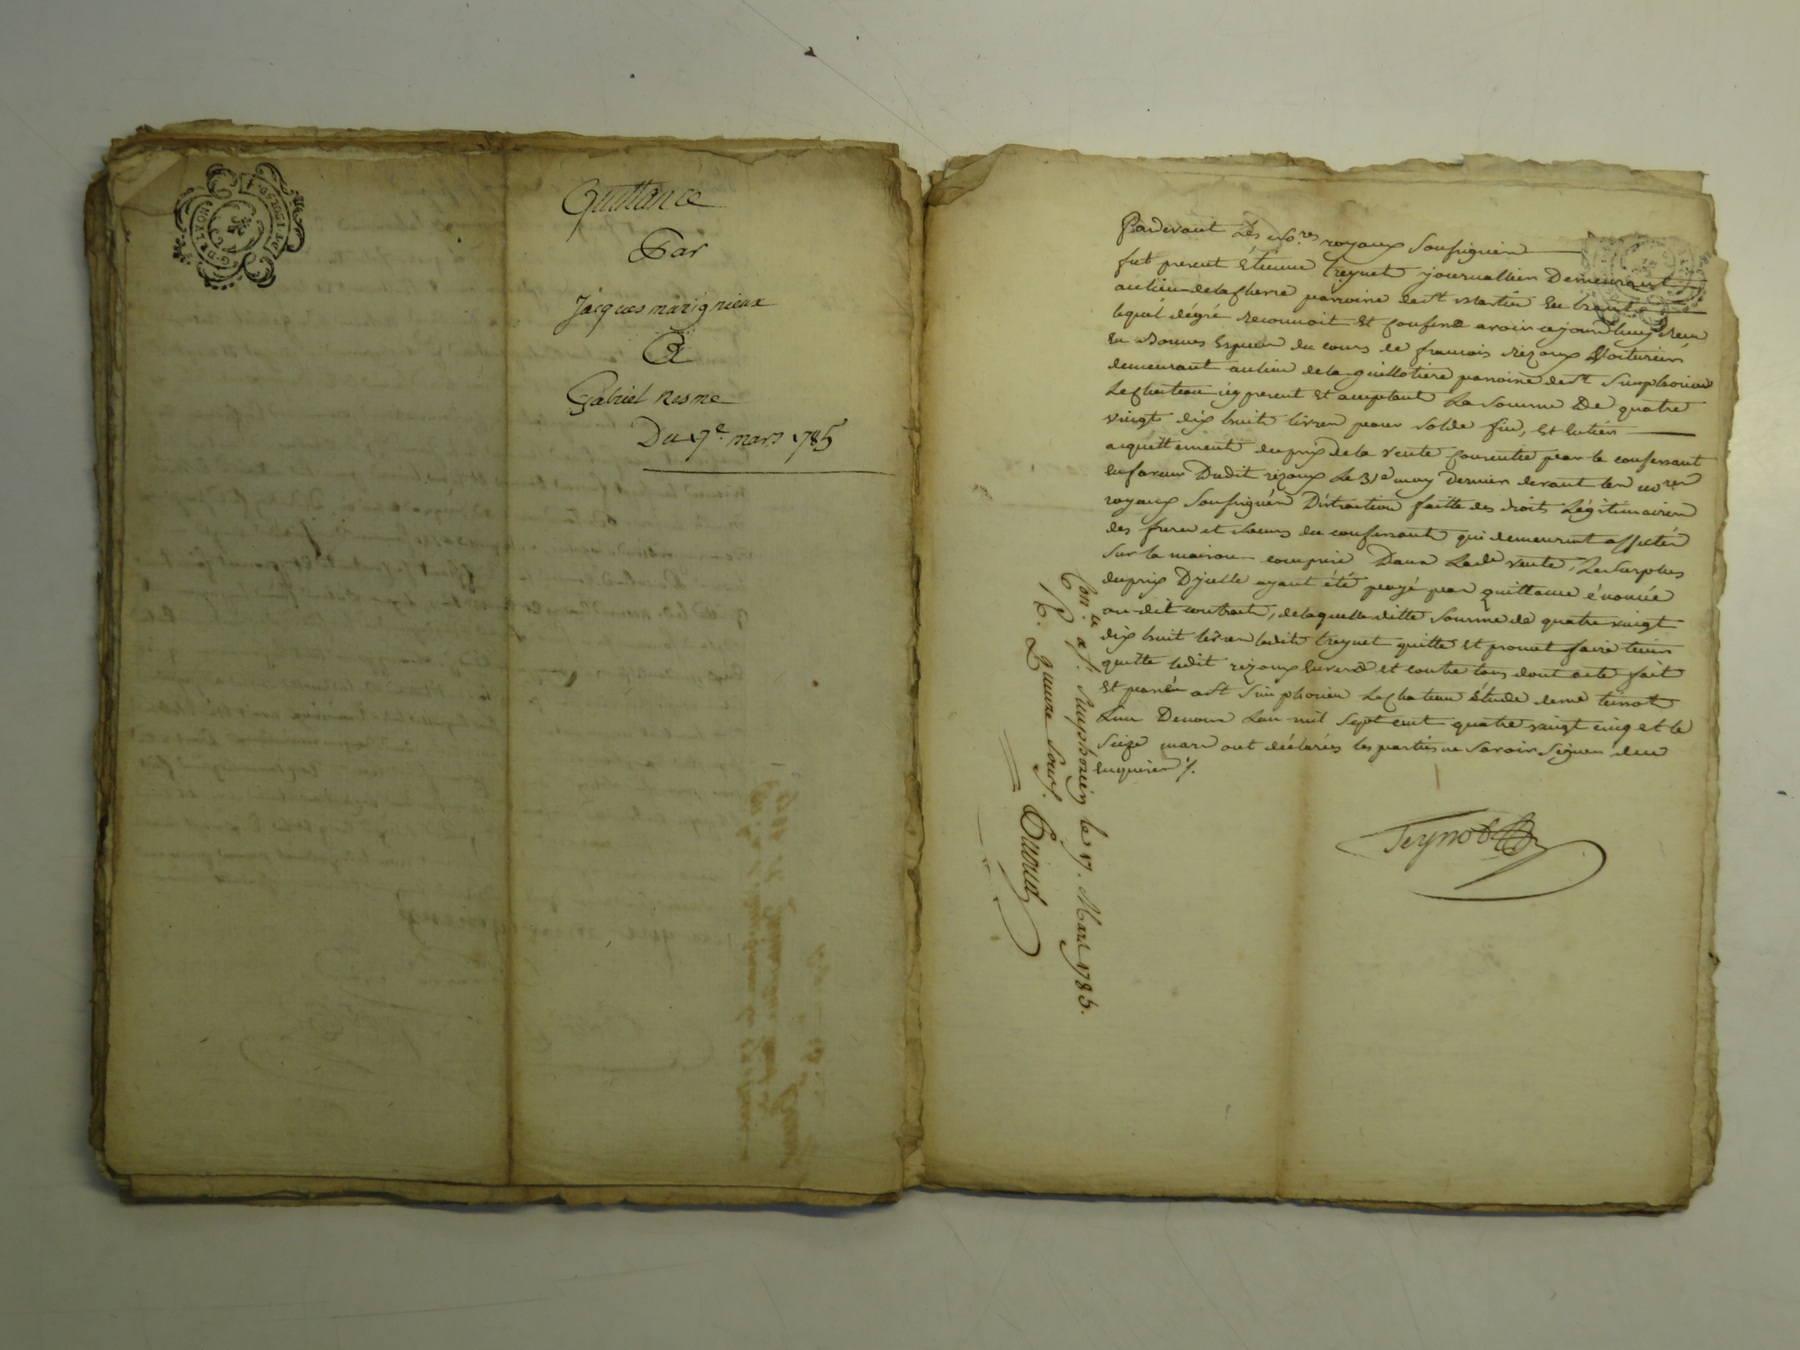 Quittance
Par
Jacques marignieux
A
Gabriel nesme
Du 17e mars 1785
Pardevant Les no.res royaux Soussignés
fut present Etienne treynet journallier Demeurant
au lieu de la paroisse de St Martin En haut
lequel dégré reconnoit Et confesse avoir ce jourd'huy Reçu
En Bonnes Especes du cours de francois rezoux Voiturier
demeurant au lieu de la guillotiere paroisse de St Simphorien
Le Chateau icy present Et acceptant La somme De quatre
vingt dix huit livres pour solde fin, Et Entier
acquittement du prix de la vente consentie par le confessant
En faveur Dudit rezoux Le 31e may Dernier devant les no.res
royaux soussignés Distraction faitte des droits Légitimaires
des freres et soeurs du confessant qui demeurent affectés
sur la maison comprise Dans Lade vente, Le surplus
du prix D'icelle ayant été payé par quittance énoncée
au dit contrat, de laquelle ditte somme de quatre vingt
dix huit livres ledit treynet quitte Et promet faire tenir
quitte ledit rezoux Envers et contre tous dont acte fait
Et passé a St Simphorien Le Chateau Étude de me
L'un De nous L'an mil sept cent quatre vingt cinq et le
seize mars ont déclarés les parties ne savoir signer de ce
Enquises ./.
Con.lé a St. Simphorien le 17. Mars 1785.
R. Quinze sous.